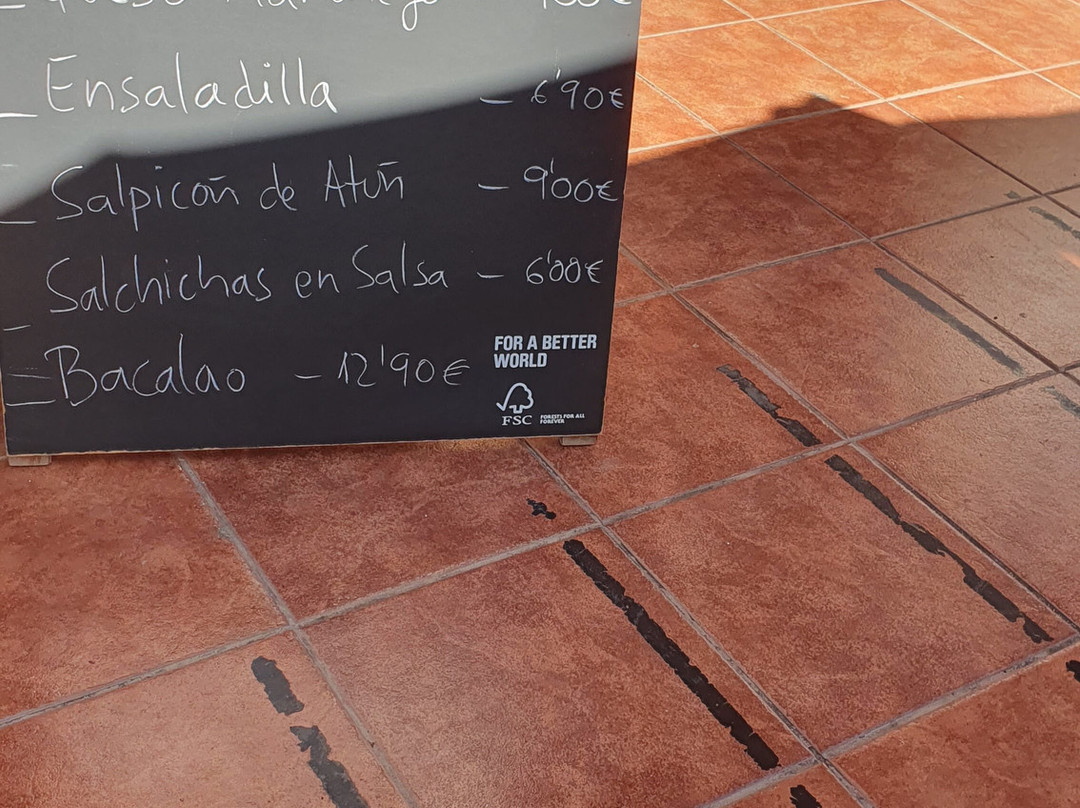 – Ensaladilla – 6'90€
– Salpicoñ de Atuñ – 9'00€
– Salchichas en Salsa – 6'00€
– Bacalao – 12'90€
FOR A BETTER
WORLD
FSC
FORESTS FOR ALL
FOREVER